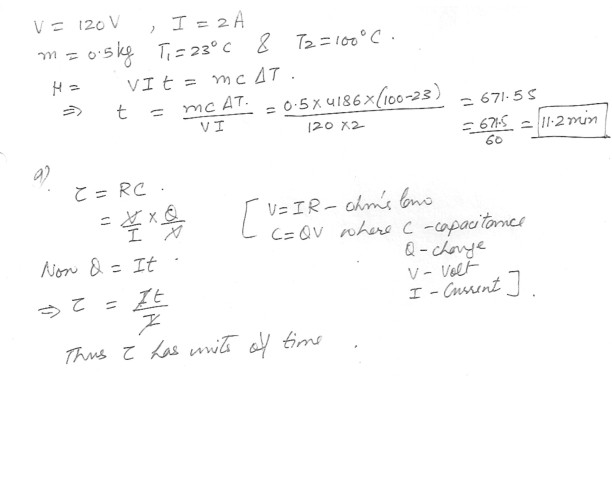 V = 120V , I = 2A
m = 0.5kg T₁ = 23°C & T₂ = 100°C .
H = VIt = mcΔT .
⇒ t = mcΔT. / VI = 0.5 x 4186 x (100-23) / 120 x 2 = 671.5 S
= 671.5 / 60 = 11.2 min
9).
τ = RC .
= V/I x Q/V
[ V = IR - ohm's law
C = QV where C - capacitance
Q - charge
V - Volt
I - Current ] .
Now Q = It .
⇒ τ = It / I
Thus τ has units of time .